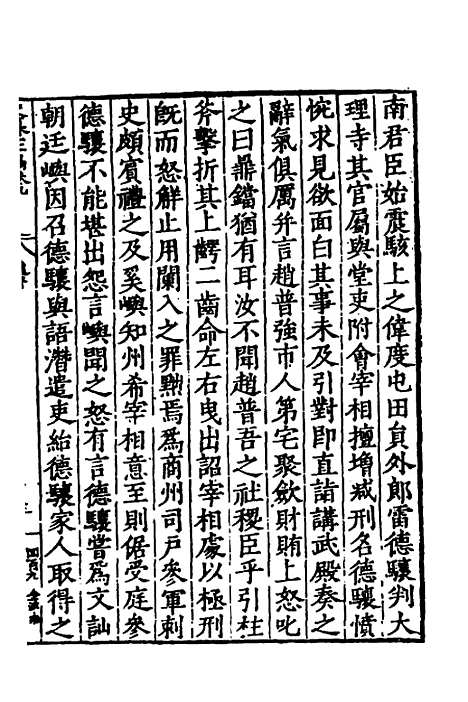 南君臣始震駭上之偉度也田貟外郎雷德驤判大
理寺其官屬與堂吏附會宰相擅增減刑名德驤憤
惋求見欲面白其事未及引對即直詣講武殿奏之
辭氣俱厲并言趙普強市人第宅聚斂財賄上怒叱
之曰鼎鐺猶有耳汝不聞趙普吾之社稷臣乎引柱
斧擊折其上齶二齒命左右曳出詔宰相處以極刑
旣而怒觧止用闌入之罪黜焉爲商州司戶參軍刺
史頗賓禮之及奚嶼知州希宰相意至則倨受庭參
德驤不能堪出怨言嶼聞之怒有言德驤嘗爲文訕
朝廷嶼因召德驤與語潛遣吏紿德驤家人取得之